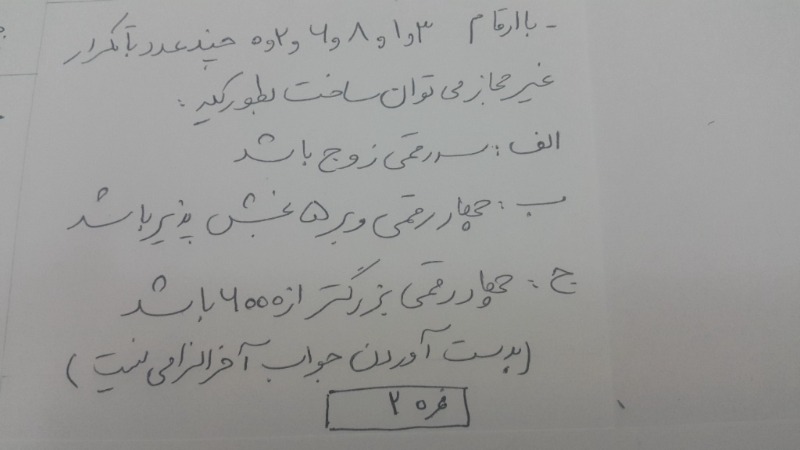 - با ارقام ۳ و ۱ و ۸ و ۶ و ۲ و ۵ چند عدد با تکرار
غیر مجاز می توان ساخت بطوریکه :
الف : سه رقمی زوج باشد
ب : چهار رقمی و بر ۵ بخش پذیر باشد
ج : چهار رقمی بزرگتر از ۶۰۰۰ باشد
(بدست آوردن جواب آخر الزامی نیست)
نمره ۲